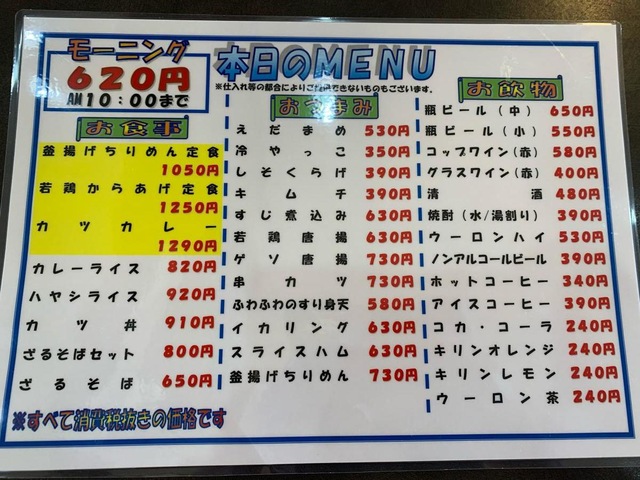 モーニング
620円
AM10:00まで
本日のMENU
※仕入れ等の都合によりご提供できないものもございます。
お食事
釜揚げちりめん定食
1050円
若鶏からあげ定食
1250円
カツカレー
1290円
カレーライス 820円
ハヤシライス 920円
カツ丼 910円
ざるそばセット 800円
ざるそば 650円
※すべて消費税抜きの価格です
おつまみ
えだまめ 530円
冷やっこ 350円
しそくらげ 390円
キムチ 390円
すじ煮込み 630円
若鶏唐揚 630円
ゲソ唐揚 730円
串カツ 730円
ふわふわのすり身天 580円
イカリング 630円
スライスハム 630円
釜揚げちりめん 730円
お飲物
瓶ビール(中) 650円
瓶ビール(小) 550円
コップワイン(赤) 580円
グラスワイン(赤) 400円
清酒 480円
焼酎(水/湯割り) 390円
ウーロンハイ 530円
ノンアルコールビール 390円
ホットコーヒー 340円
アイスコーヒー 390円
コカ・コーラ 240円
キリンオレンジ 240円
キリンレモン 240円
ウーロン茶 240円